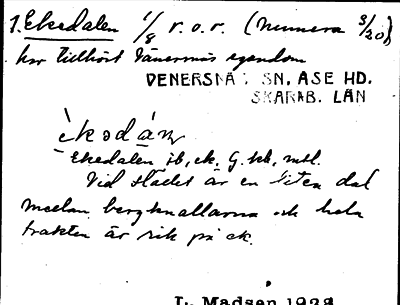 1. Ekedalen 1/8 r. o. r. (numera 3/20),
har tillhört Vänersnäs egendom
VÄNERSNÄS SN, ÅSE HD.
SKARAB. LÄN
èkedán,
Ekedalen jb, ek. G. kb, mtl.
Vid stället är en liten dal
mellan bergknallarna och hela
trakten är rik på ek.
L. Madsen 1928